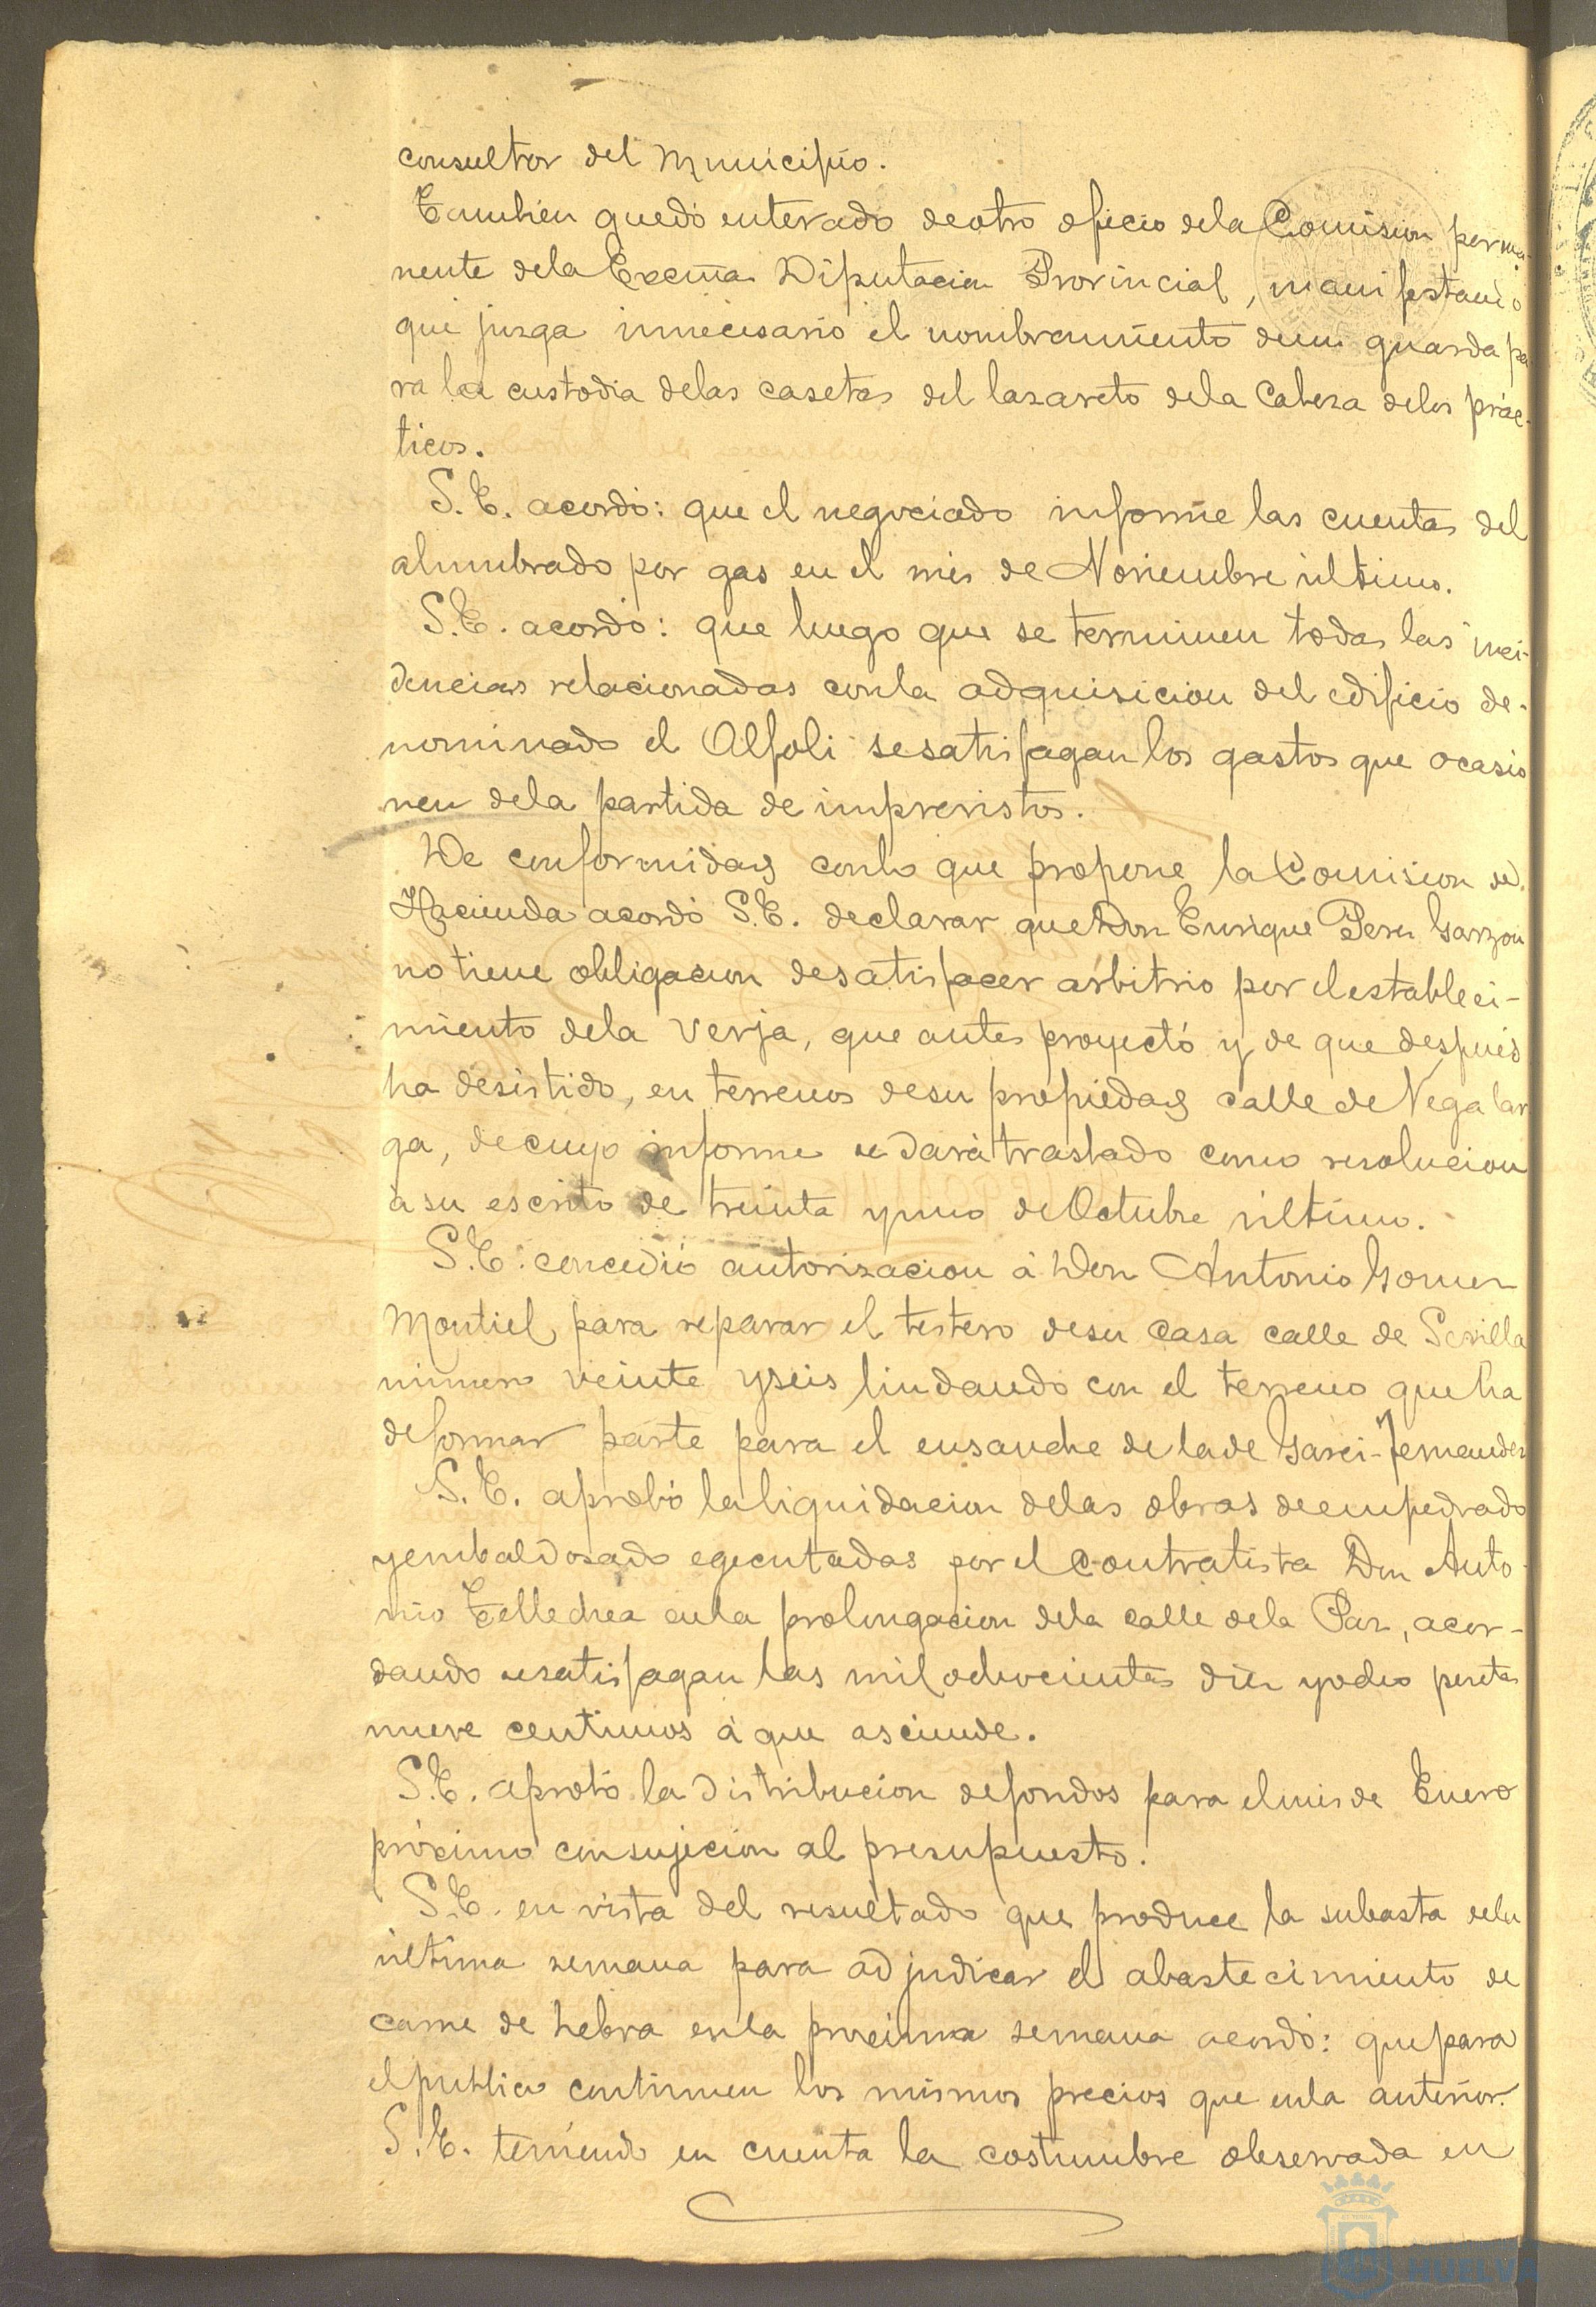 consultor del Municipio.
Tambien quedó enterado de otro oficio de la Comision perma-
nente de la Excma Diputacion Provincial, manifestando
que juzga innecesario el nombramiento de un guarda pa
ra la custodia de las casetas del lazareto de la Cabeza de los prác-
ticos.
S.E. acordó: que el negociado informe las cuentas del
alumbrado por gas en el mes de Noviembre último.
S.E. acordó: que luego que se terminen todas las inci-
dencias relacionadas con la adquisicion del edificio de-
nominado el Alfoli se satisfagan los gastos que ocasio
nen de la partida de imprevistos.
De conformidad con lo que propone la Comision de
Hacienda acordó S.E. declarar que Don Enrique Perez Garzon
no tiene obligacion de satisfacer arbitrio por el estableci-
miento de la verja, que antes proyectó y de que despues
ha desistido, en terrenos de su propiedad calle de Vega lar
ga, de cuyo informe se dará traslado como resolucion
á su escrito de treinta y uno de Octubre último.
S.E. concedió autorizacion á Don Antonio Gomez
Montiel para reparar el testero de su casa calle de Sevilla
número veinte y seis lindando con el terreno que ha
de formar parte para el ensanche de la de Garci-Fernandez
S.E. aprobó la liquidacion de las obras de empedrado
y embaldosado egecutadas por el contratista Don Anto-
nio Tellechea en la prolongacion de la calle de la Paz, acor-
dando se satisfagan las mil ochocientas diez y ocho pesetas
nueve centimos á que asciende.
S.E. aprobó la distribucion de fondos para el mes de Enero
próximo con sujecion al presupuesto.
S.E. en vista del resultado que produce la subasta de la
última semana para adjudicar el abastecimiento de
carne de hebra en la proxima semana acordó: que para
el publico continuen los mismos precios que en la anterior.
S.E. teniendo en cuenta la costumbre observada en
HUELVA